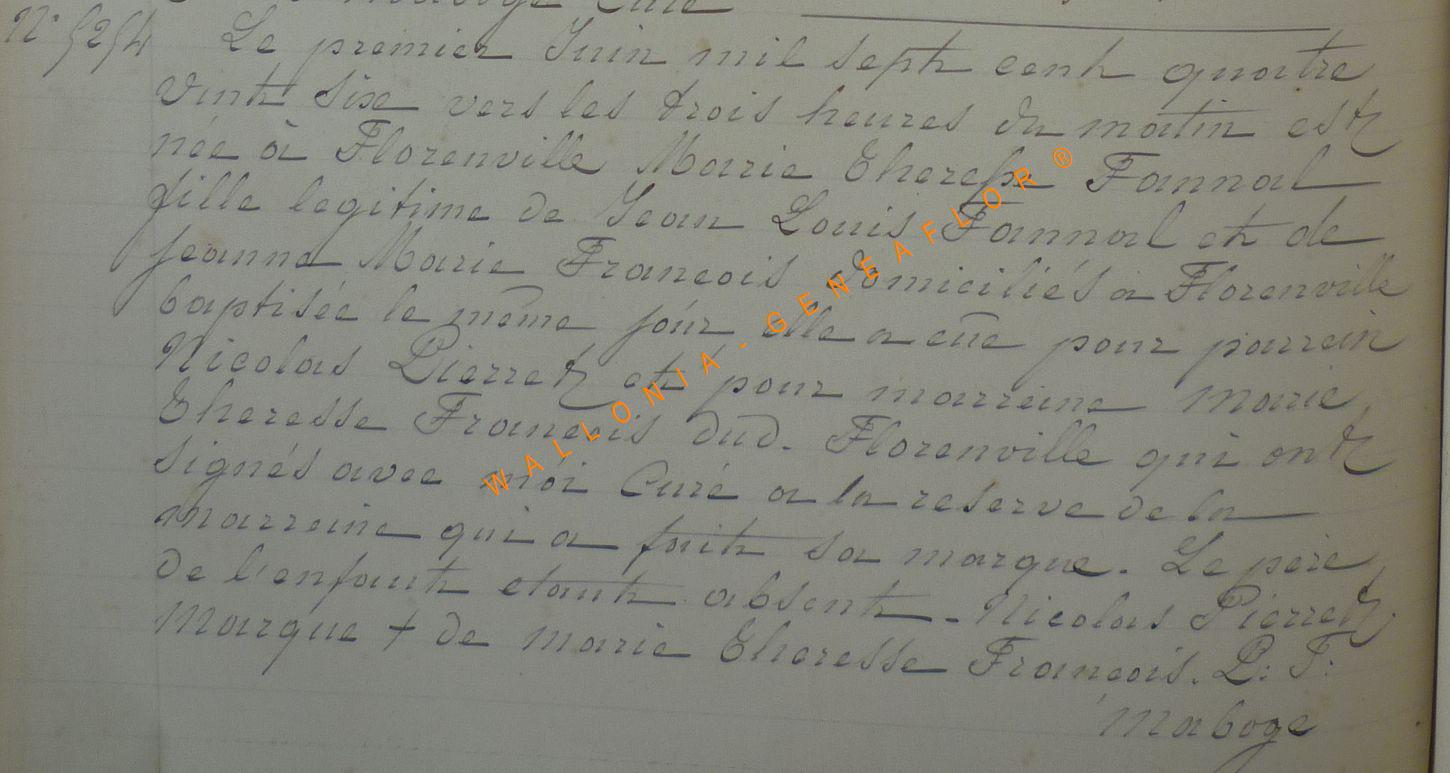 Maboge Curé
N° 5254 Le premier Juin mil sept cent quatre
vint six vers les trois heures du matin est
née à Florenville Marie Therese Fannal
fille legitime de Jean Louis Fannal et de
jeanne Marie Francois domiciliés a Florenville
baptisée le même jóur elle a eûe pour parrein
Nicolas Pierret et pour marreine marie
Theresse Francois dud. Florenville qui ont
signés avec mói Curé a la reserve de la
marreine qui a fait sa marque. Le pére
de l'enfant etant absent - Nicolas Piérret.
Marque + de marie Theresse Francois. P: F:
Maboge
WALLONIA - GENEAFLOR ®